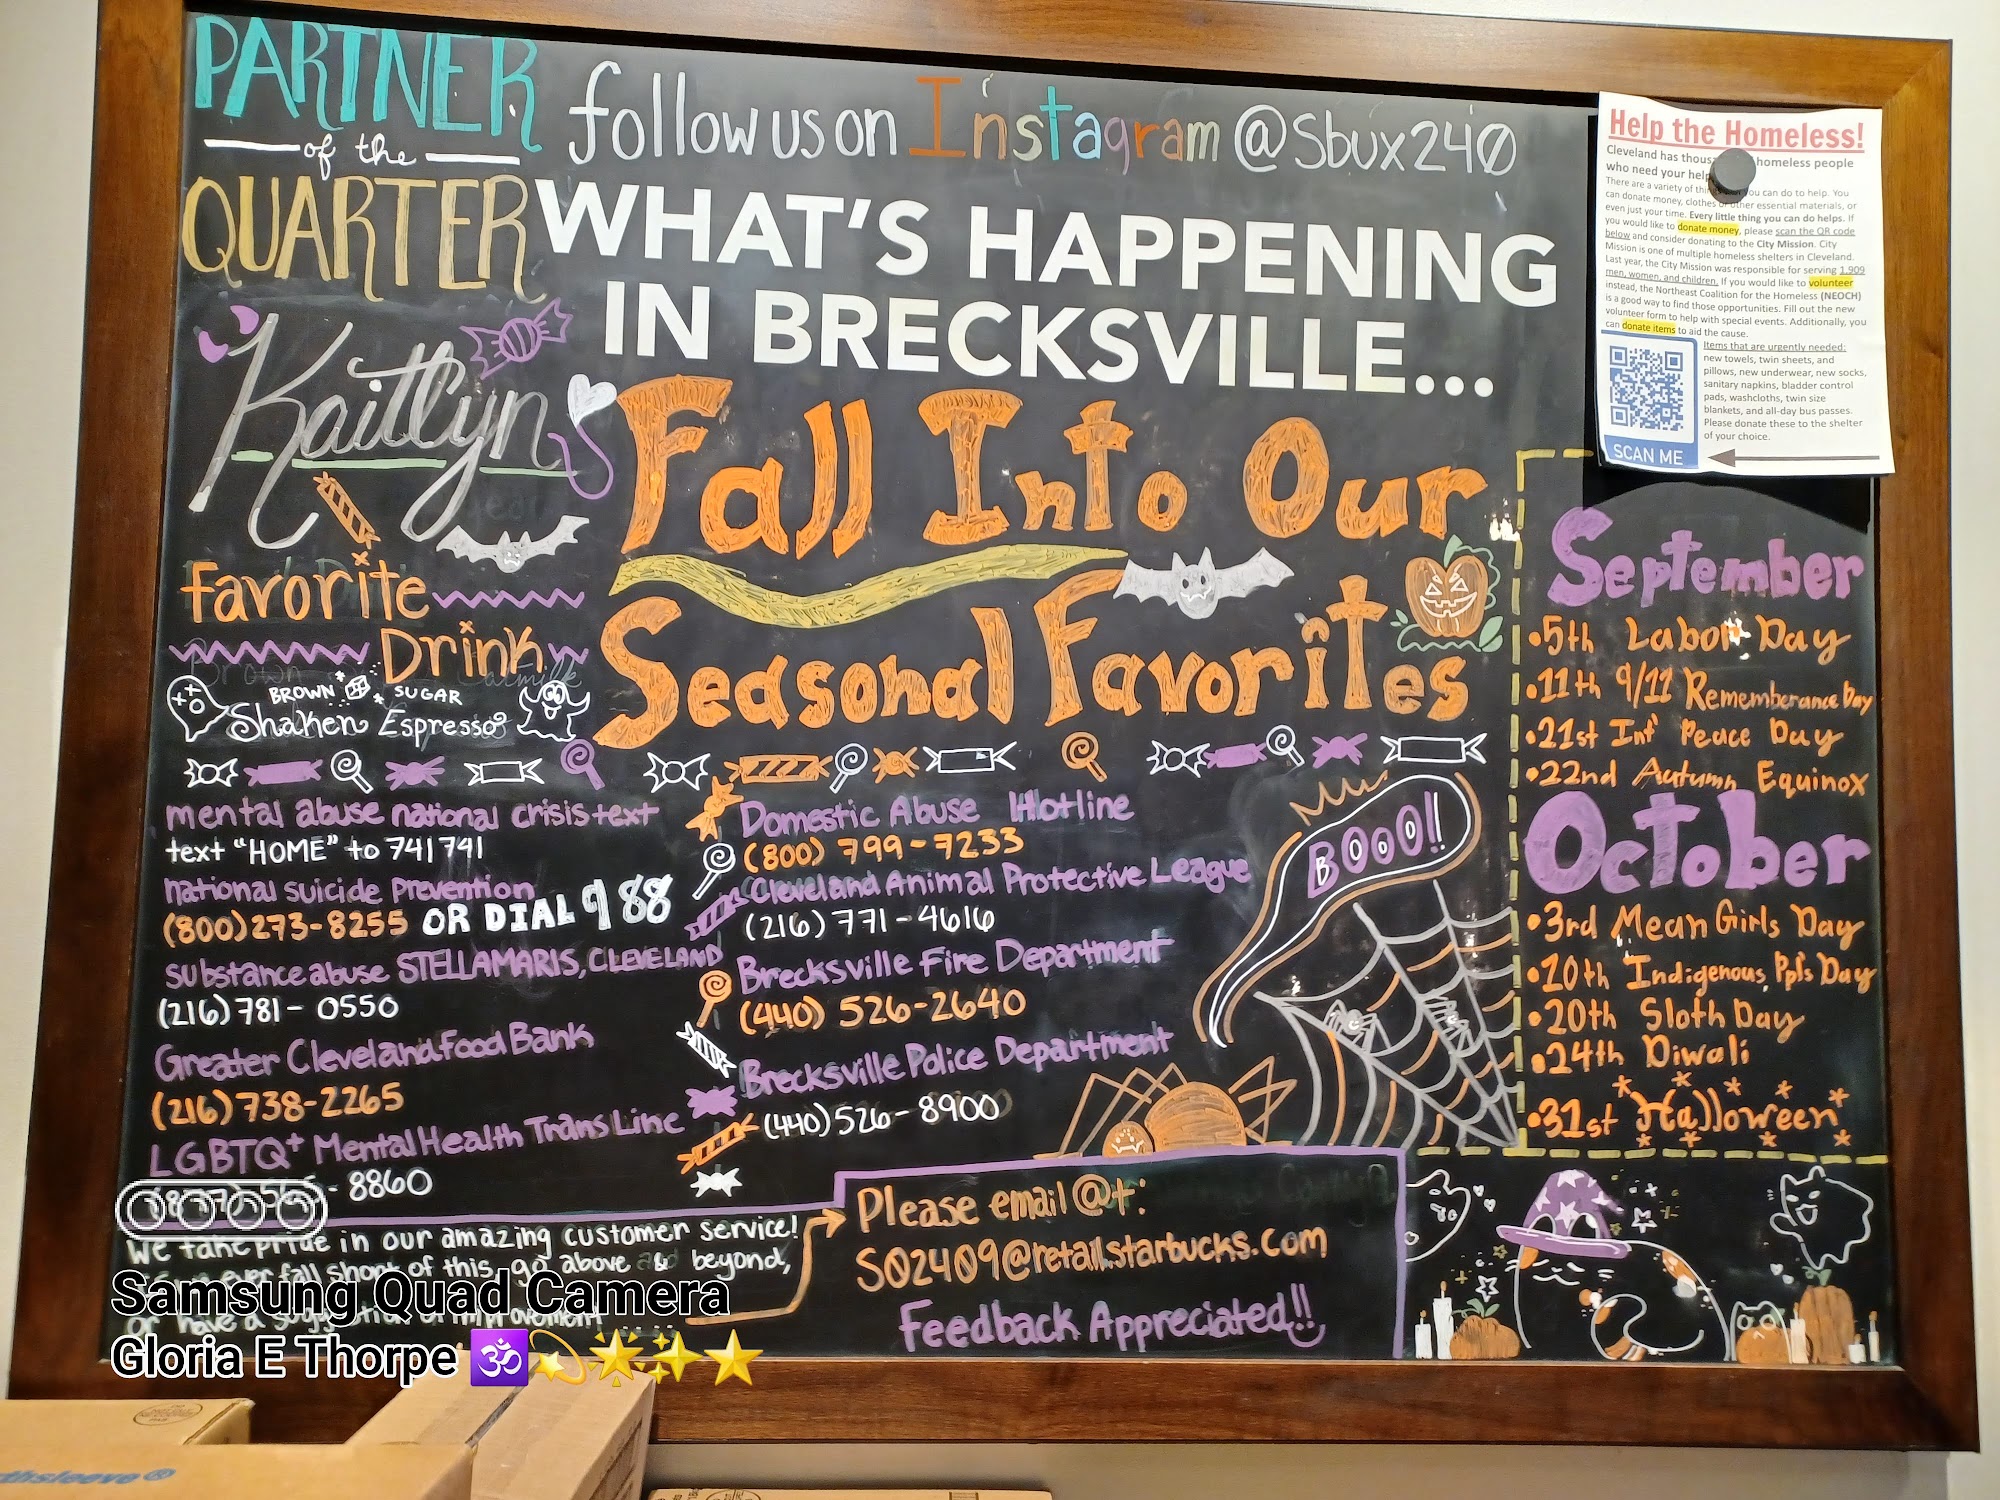 PARTNER
of the
QUARTER
Kaitlyn
favorite
Drink
BROWN SUGAR
Shaken Espresso
follow us on Instagram @Sbux240
WHAT'S HAPPENING
IN BRECKSVILLE...
Fall Into Our
Seasonal Favorites
mental abuse national crisis text
text "HOME" to 741741
national suicide prevention
(800)273-8255 OR DIAL 988
substance abuse STELLAMARIS, CLEVELAND
(216)781-0550
Greater Cleveland Food Bank
(216)738-2265
LGBTQ+ Mental Health Trans Line
(877)565-8860
Domestic Abuse Hotline
(800) 799-7233
Cleveland Animal Protective League
(216)771-4616
Brecksville Fire Department
(440) 526-2640
Brecksville Police Department
(440)526-8900
BOOO!!
We take pride in our amazing customer service!
ever fall short of this, go above & beyond,
or have a of improvement
Please email @t:
S02409@retail.starbucks.com
Feedback Appreciated!!
Help the Homeless!
Cleveland has homeless people
who need your help
There are a variety of things you can do to help. You
can donate money, clothes or other essential materials, or
even just your time. Every little thing you can do helps. If
you would like to donate money, please scan the QR code
below and consider donating to the City Mission. City
Mission is one of multiple homeless shelters in Cleveland.
Last year, the City Mission was responsible for serving 1,909
men, women, and children. If you would like to volunteer
instead, the Northeast Coalition for the Homeless (NEOCH)
is a good way to find those opportunities. Fill out the new
volunteer form to help with special events. Additionally, you
can donate items to aid the cause.
Items that are urgently needed:
new towels, twin sheets, and
pillows, new underwear, new socks,
sanitary napkins, bladder control
pads, washcloths, twin size
blankets, and all-day bus passes.
Please donate these to the shelter
of your choice.
SCAN ME
September
•5th Labor Day
•11th 9/11 Rememberance Day
•21st Int' Peace Day
•22nd Autumn Equinox
October
•3rd Mean Girls Day
•10th Indigenous Ppls Day
•20th Sloth Day
•24th Diwali
•31st Halloween
Samsung Quad Camera
Gloria E Thorpe 🕉💫🌟✨⭐
thsleeve®